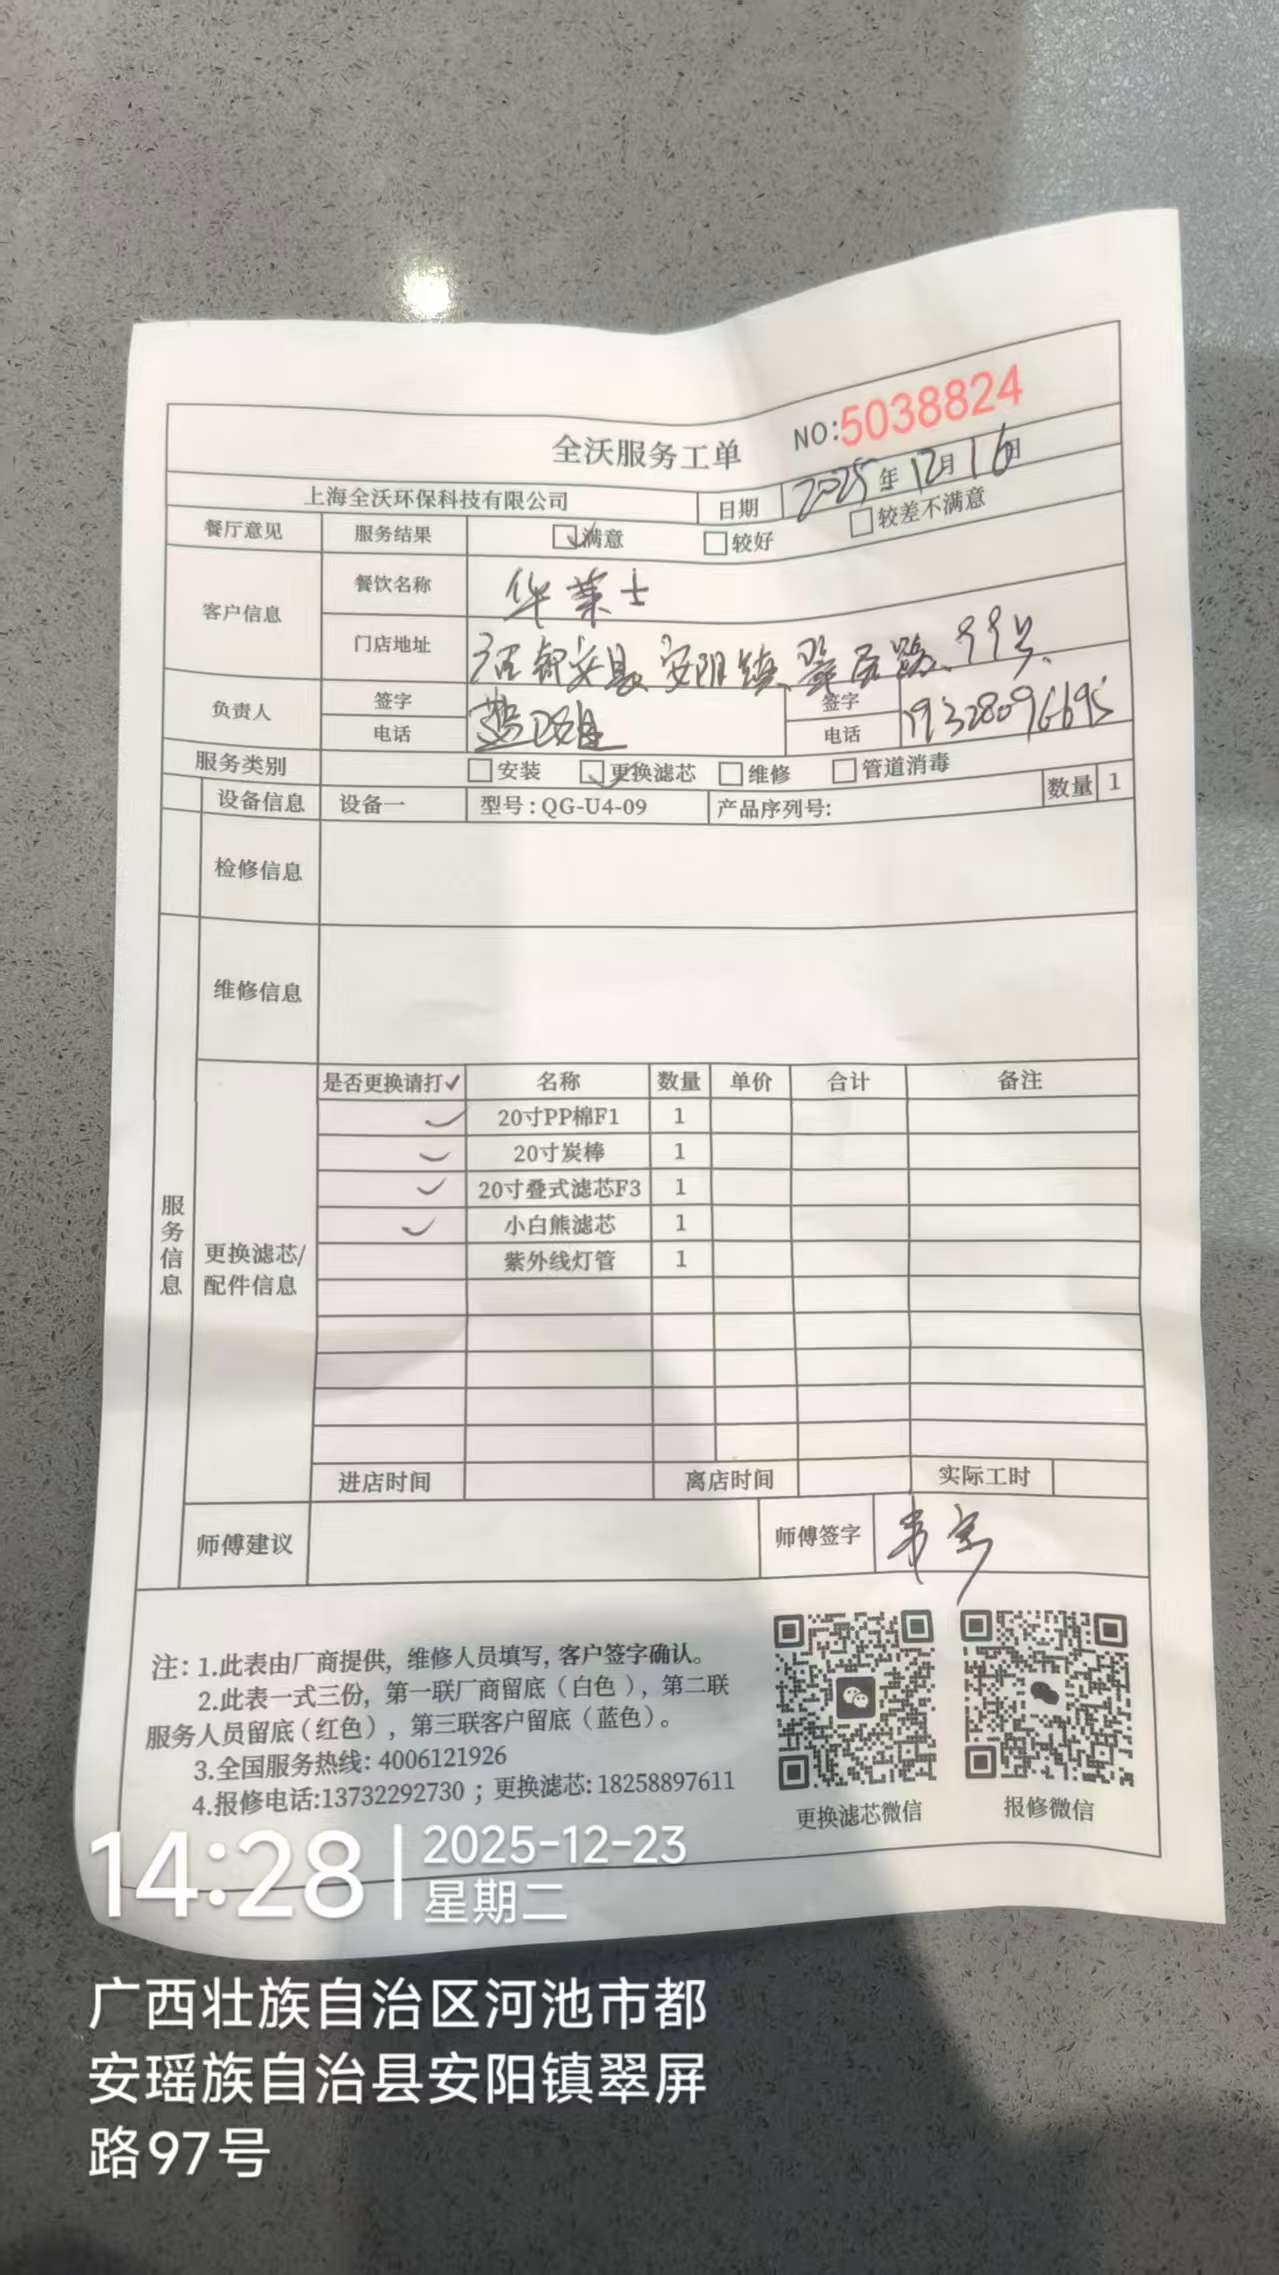 全沃服务工单 NO:5038824
上海全沃环保科技有限公司 日期 2025年12月16日
餐厅意见 服务结果 满意 较好 较差不满意
客户信息 餐饮名称 华莱士
门店地址 安县 安阳镇 翠屏路 99号
负责人 签字 签字
电话 电话 19328096695
服务类别 安装 更换滤芯 维修 管道消毒
设备信息 设备一 型号:QG-U4-09 产品序列号: 数量 1
检修信息
维修信息
服务信息
更换滤芯/配件信息
是否更换请打✓ 名称 数量 单价 合计 备注
✓ 20寸PP棉F1 1
✓ 20寸炭棒 1
✓ 20寸叠式滤芯F3 1
✓ 小白熊滤芯 1
紫外线灯管 1
进店时间 离店时间 实际工时
师傅建议 师傅签字
注: 1.此表由厂商提供, 维修人员填写, 客户签字确认。
2.此表一式三份, 第一联厂商留底(白色), 第二联
服务人员留底(红色), 第三联客户留底(蓝色)。
3.全国服务热线: 4006121926
4.报修电话:13732292730 ; 更换滤芯: 18258897611
更换滤芯微信 报修微信
14:28 2025-12-23
星期二
广西壮族自治区河池市都
安瑶族自治县安阳镇翠屏
路97号